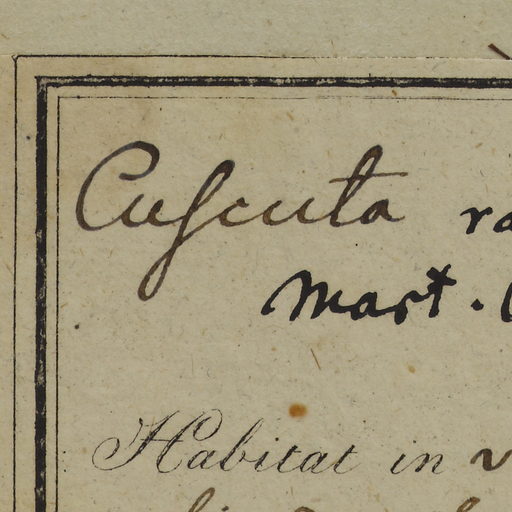 Cuscuta ra
Mart.
Habitat in